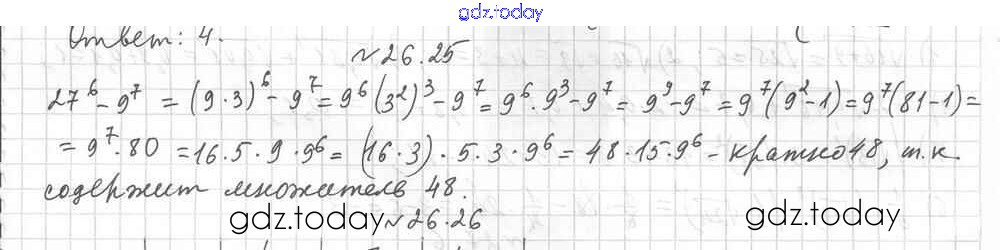 gdz.today
Ответ: 4.
№26.25
27⁶ - 9⁷ = (9·3)⁶ - 9⁷ = 9⁶(3²)³ - 9⁷ = 9⁶·9³ - 9⁷ = 9⁹ - 9⁷ = 9⁷(9² - 1) = 9⁷(81 - 1) =
= 9⁷·80 = 16·5·9·9⁶ = (16·3)·5·3·9⁶ = 48·15·9⁶ - кратно 48, т.к.
содержит множитель 48.
№26.26
gdz.today gdz.today